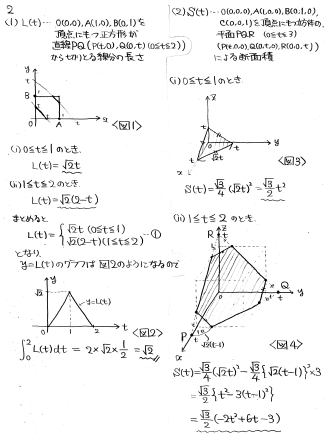 2
(1) L(t)… O(0,0), A(1,0), B(0,1)を
頂点にもつ正方形が
直線PQ(P(t,0), Q(0,t) (0≦t≦2))
から切りとる線分の長さ
y
B
O
A
t
x
<図1>
(i) 0≦t≦1のとき、
L(t)=√2t
(ii) 1≦t≦2のとき、
L(t)=√2(2-t)
まとめると、
L(t)={√2t (0≦t≦1)
√2(2-t)(1≦t≦2) …①
となり、
y=L(t)のグラフは図2のようになるので
y
√2
y=L(t)
0
1
2
t
<図2>
∫₀² L(t)dt = 2×√2×1/2 = √2
(2) S(t)… O(0,0,0), A(1,0,0), B(0,1,0),
C(0,0,1)を頂点にもつ立方体の、
平面PQR (0≦t≦3)
(P(t,0,0), Q(0,t,0), R(0,0,t))
による断面積
(i) 0≦t≦1のとき、
z
t
t
y
t
√2t
x
<図3>
S(t)=√3/4(√2t)²=√3/2t²
(ii) 1≦t≦2 のとき、
z
R
t
Q
t
y
P
t
x
√2(t-1)
<図4>
S(t)=√3/4(√2t)²-√3/4{√2(t-1)}²×3
=√3/2{t²-3(t-1)²}
=√3/2(-2t²+6t-3)